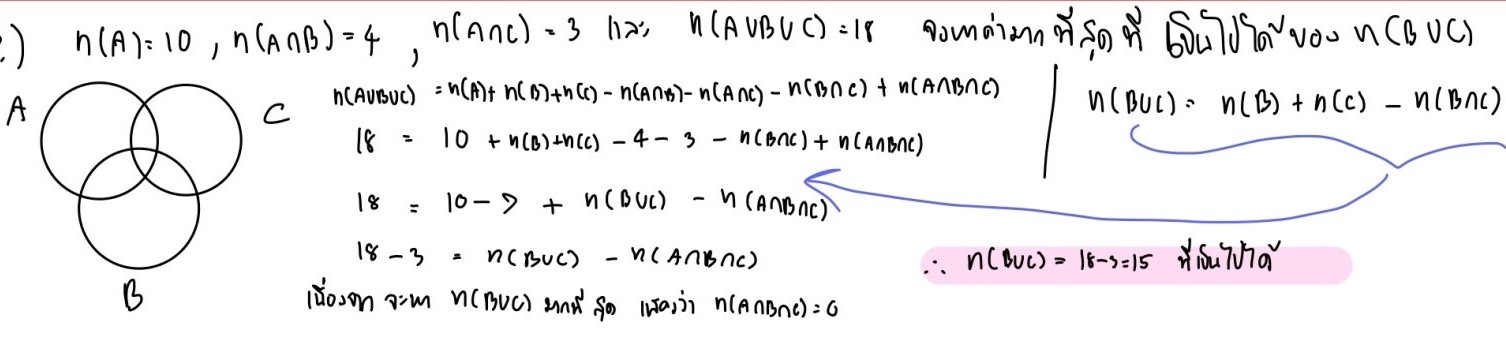 2.) n(A) = 10 , n(A∩B) = 4 , n(A∩C) = 3 และ n(A∪B∪C) = 18 จงหาค่ามากที่สุดที่ เป็นไปได้ของ n(B∪C)
A
C
B
n(A∪B∪C) = n(A) + n(B) + n(C) - n(A∩B) - n(A∩C) - n(B∩C) + n(A∩B∩C)
18 = 10 + n(B) + n(C) - 4 - 3 - n(B∩C) + n(A∩B∩C)
18 = 10 - 7 + n(B∪C) - n(A∩B∩C)
18 - 3 = n(B∪C) - n(A∩B∩C)
เนื่องจาก จะหา n(B∪C) มากที่สุด แสดงว่า n(A∩B∩C) = 0
n(B∪C) = n(B) + n(C) - n(B∩C)
∴ n(B∪C) = 18-3=15 ที่เป็นไปได้